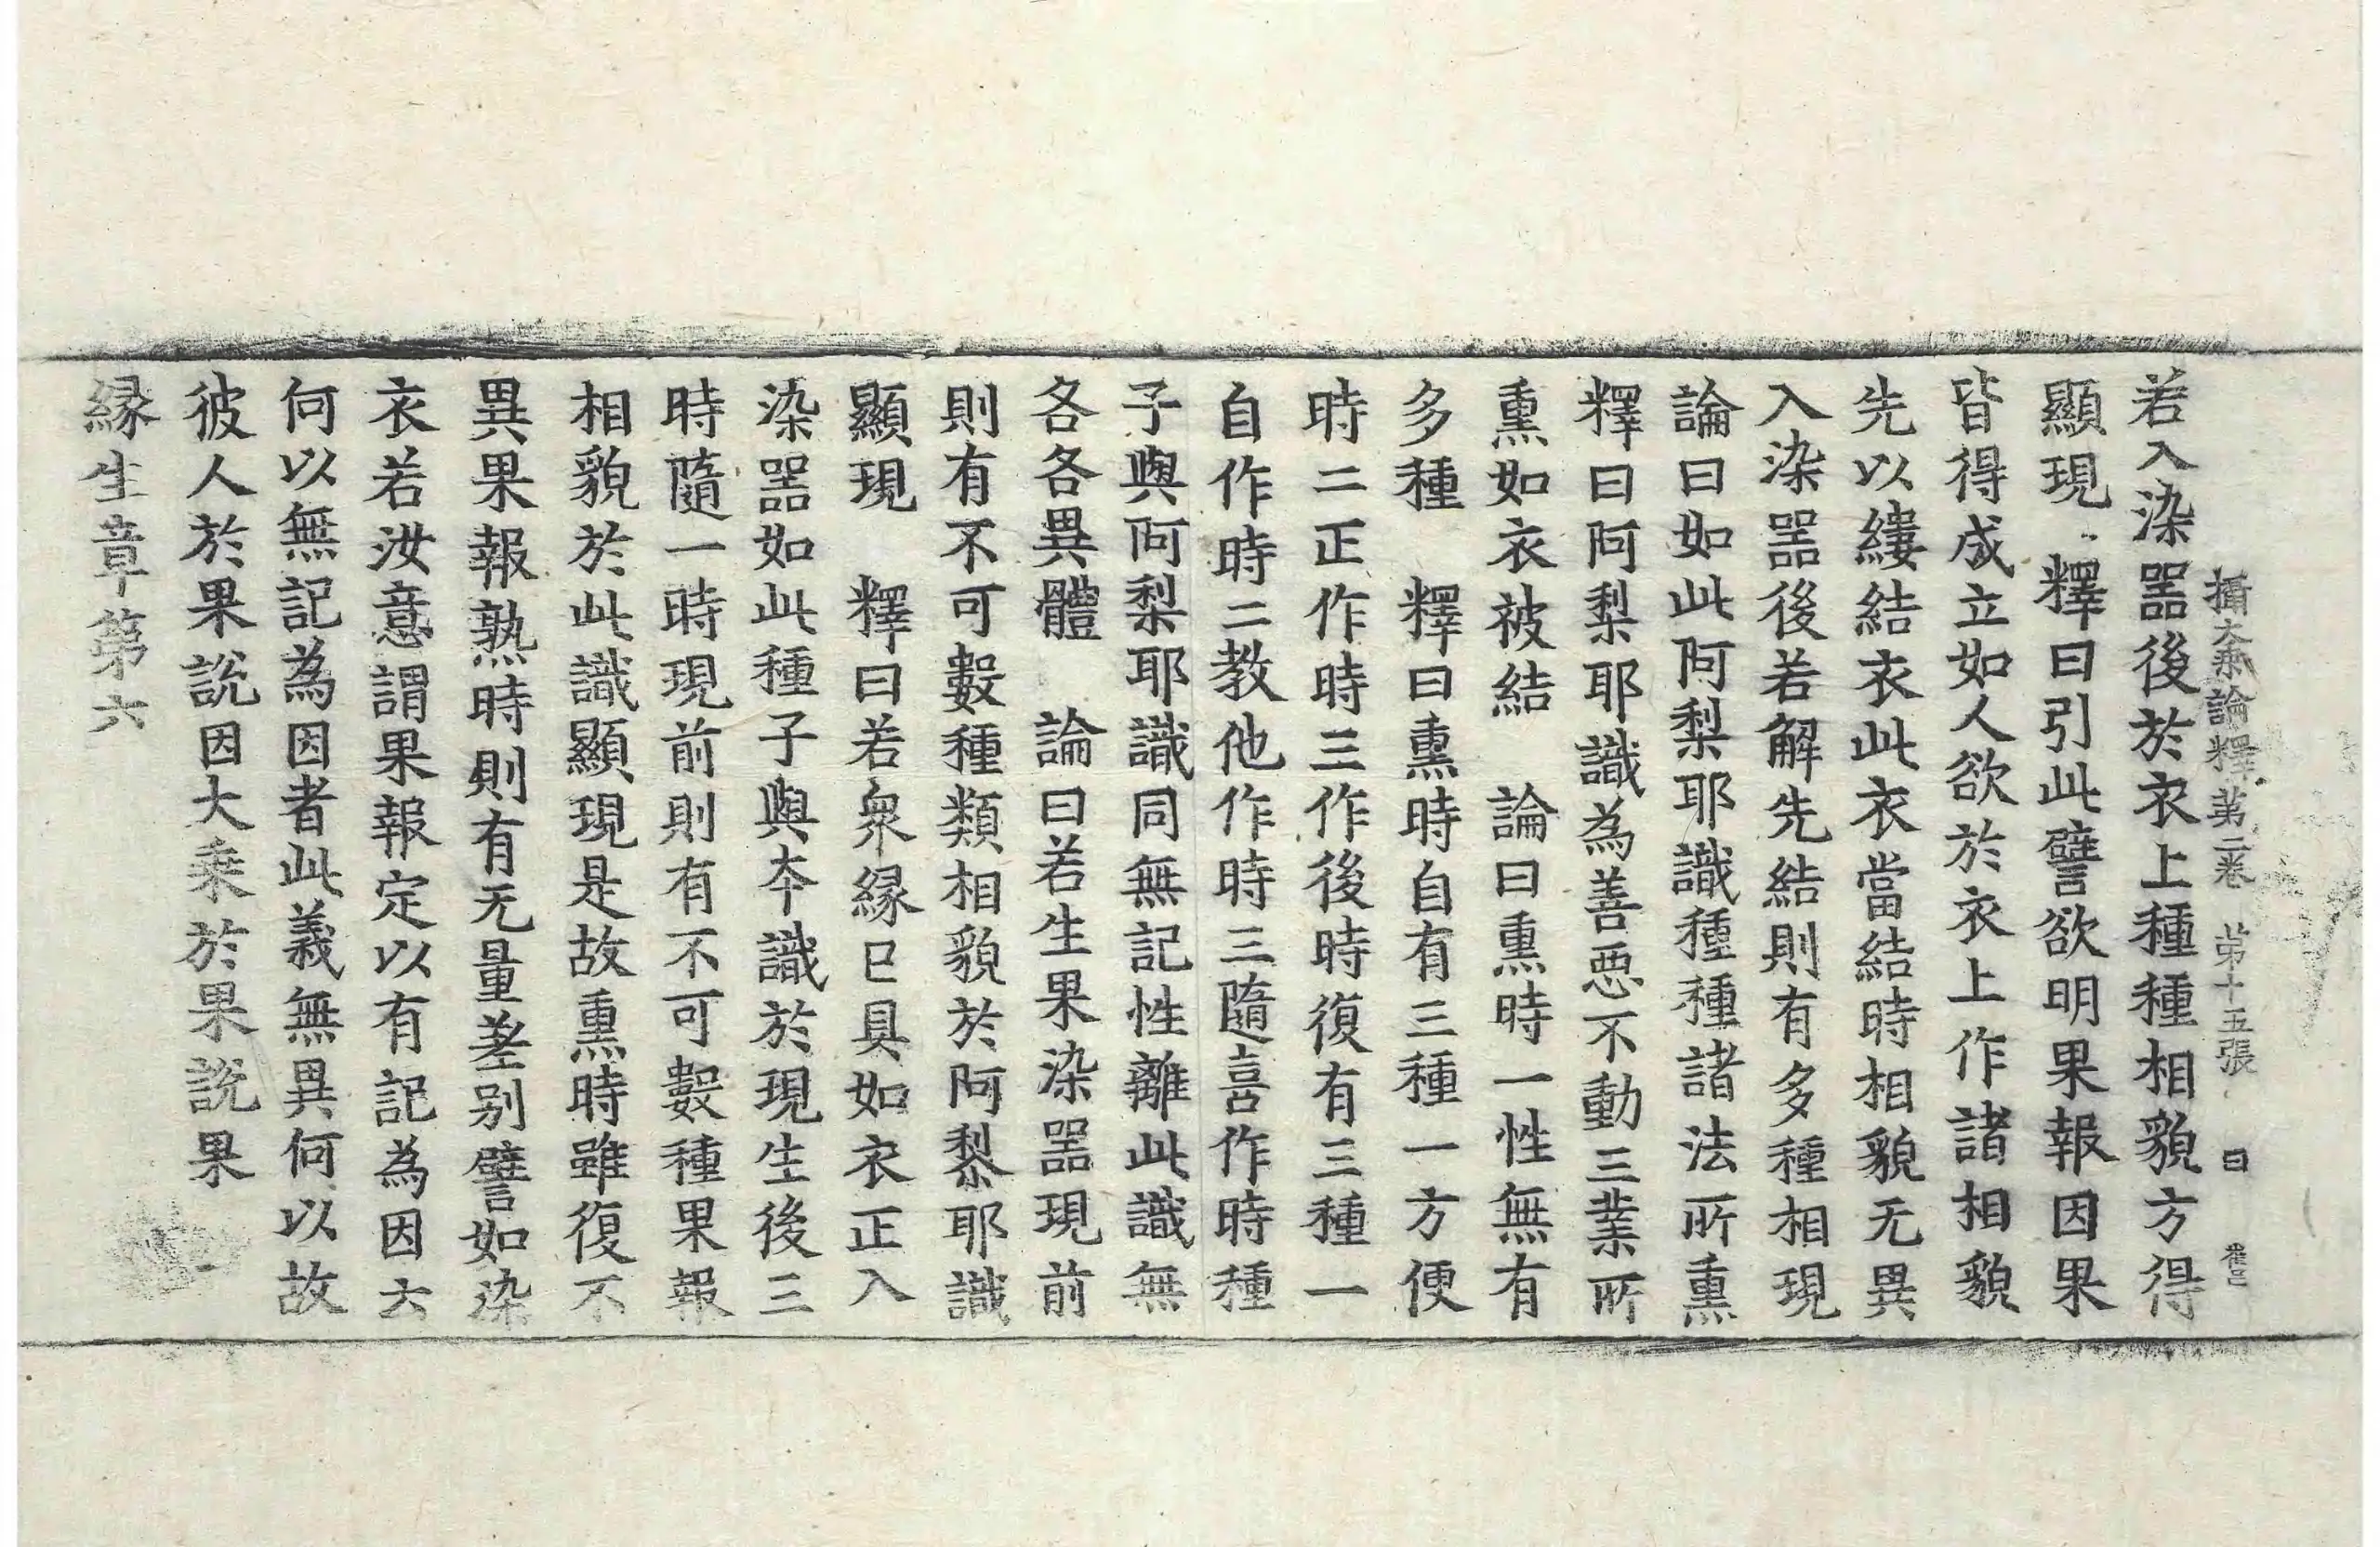 攝大乘論釋第二卷　第十五張　曰
若入染噐後於衣上種種相貌方得
顯現　釋曰引此譬欲明果報因果
皆得成立如人欲於衣上作諸相貌
先以縷結衣此衣當結時相貌无異
入染噐後若解先結則有多種相現
論曰如此阿梨耶識種種諸法所熏
釋曰阿梨耶識為善惡不動三業所
熏如衣被結　論曰熏時一性無有
多種　釋曰熏時自有三種一方便
時二正作時三作後時復有三種一
自作時二教他作時三隨喜作時種
子與阿梨耶識同無記性離此識無
各各異體　論曰若生果染噐現前
則有不可數種類相貌於阿黎耶識
顯現　釋曰若衆縁已具如衣正入
染噐如此種子與本識於現生後三
時隨一時現前則有不可數種果報
相貌於此識顯現是故熏時雖復不
異果報熟時則有无量差别譬如染
衣若汝意謂果報定以有記為因六
何以無記為因者此義無異何以故
彼人於果說因大乘於果說果
縁生章第六